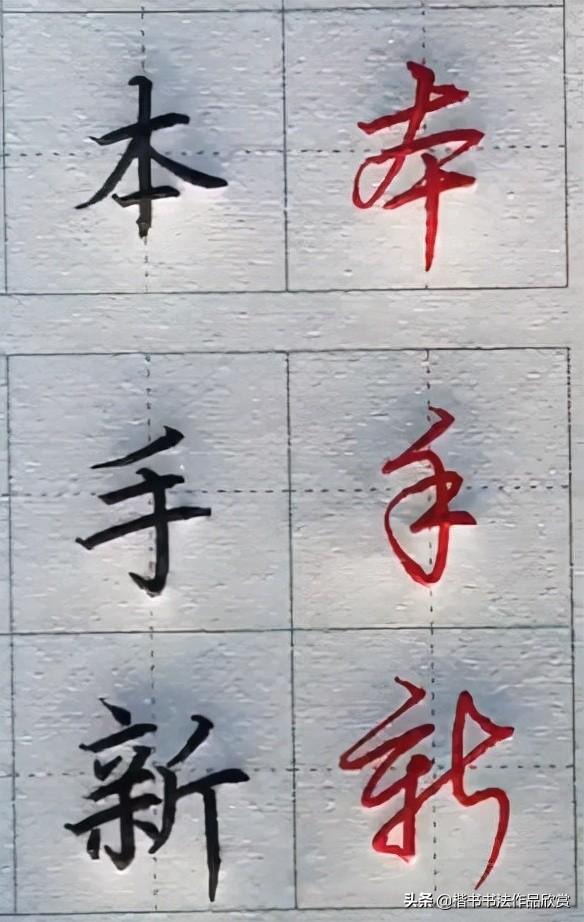 本 本
手 手
新 新
头条 @楷书书法作品欣赏